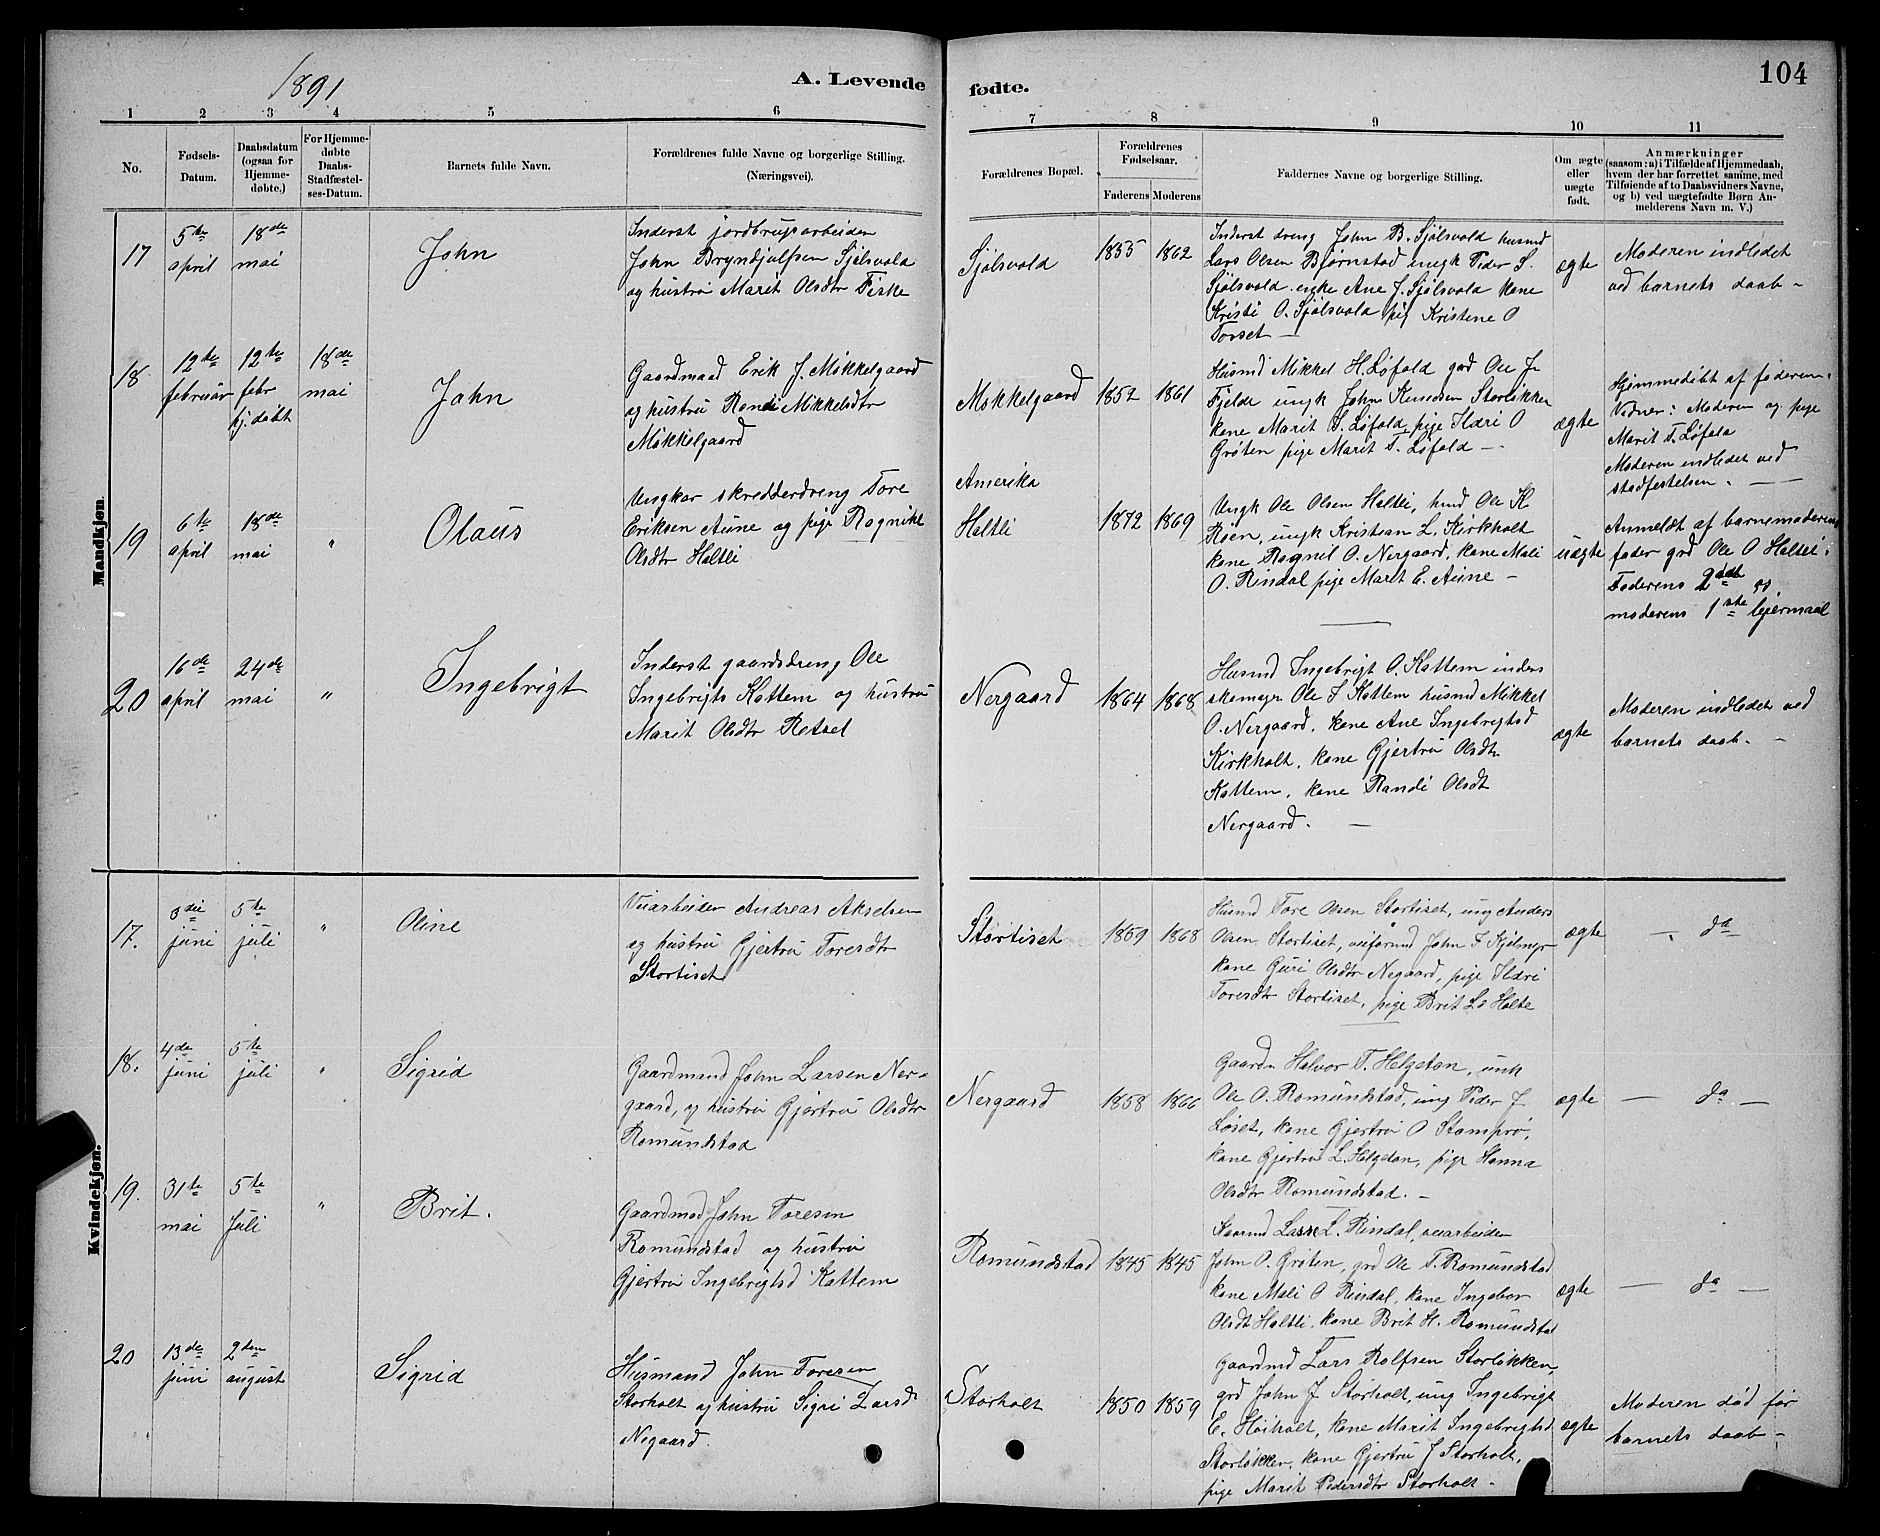 1891
A. Levende fødte.
104
1 2 3 4 5 6 7 8 9 10 11
No.
Fødsels-
Datum.
Daabsdatum
(ogsaa for
Hjemme-
døbte.)
For Hjemme-
døbte
Daabs-
Stadfæstel-
ses-Datum.
Barnets fulde Navn.
Forældrenes fulde Navne og borgerlige Stilling.
(Næringsvei).
Forældrenes Bopæl.
Forældrenes
Fødselsaar.
Faderens Moderens
Faddernes Navne og borgerlige Stilling.
Om ægte
eller
uægte
født.
Anmærkninger
(saasom: a) i Tilfælde af Hjemmedaab,
hvem der har forrettet samme, med
Tilføiende af to Daabsvidners Navne,
og b) ved uægtefødte Børn An-
melderens Navn m. V.)
Mandkjøn.
17
5te
april
18de
mai
John
Inderst jordbrugsarbeider
John Bryndjulfsen Sjølsvold
og hustru Marit Olsdtr Fiske
Sjølsvold
1855
1862
Inderst dreng John B. Sjølsvold husmd
Lars Olsen Bjørnstad ungk Peder S.
Sjølsvold. enke Ane J. Sjølsvold kone
Kristi O. Sjølsvold pig Kristene O
Torset —
ægte
Moderen indledet
ved barnets daab –
18
12te
februar
12te
febr
hj. døbt
18de
mai
John
Gaardmand Erik J. Mokkelgaard
og hustru Randi Mikkelsdtr
Møkkelgaard
Mokkelgaard
1852
1861
Husmd Mikkel H. Løfald grd Ole J.
Fjelde ungk John Knudsen Storløkken
kone Marit S. Løfald, pige Ildri O
Grøten pige Marit T. Løfald —
ægte
Hjemmedøbt af faderen.
Vidner: Moderen og pige
Marit T. Løfald
Moderen indledet ved
stadfestelsen. — —
19
6te
april
18de
mai
"
Olaus
Ungkar skredderdreng Tore
Eriksen Aune og pige Ragnild
Olsdtr Haltli
Amerika
Haltli
1872
1869
Ungk Ole Olsen Haltli, husmd Ole K
Röen, ungk Kristian L. Kirkholt
kone Ragnil O. Nergaard, kone Mali
O. Rindal pige Marit E. Aune –
uægte
Anmeldt af barnemoderens
fader grd Ole O Haltli;
Faderens 2det og
moderens 1ste leiermaal
20
16de
april
24de
mai
"
Ingebrigt
Inderst gaardsdreng Ole
Ingebrigts Kattem og hustru
Marit Olsdtr
Nergaard
1864
1868
Husmd Ingebrigt O. Kattem inders
skomagr Ole I Kattem husmd Mikkel
O. Nergaard, kone Ane Ingebrigtsd
Kirkholt, kone Gjertru Olsdtr
Kattem, kone Randi Olsdt
Nergaard. —
ægte
Moderen indledet ved
barnets daab. –
Kvindekjøn.
17.
3die
juni
5te
juli
"
Oline
Veiarbeider Andreas Akselsen
og hustru Gjertru Toresdtr
Stortiset
Stortiset
1859
1868
Husmd Tore Olsen Stortiset, ung Anders
Olsen Stortiset, veiformd John T Kjølmyr
kone Guri Olsdtr Negaard, pige Ildri
Toresdtr Stortiset, pige Brit Ls Holte
ægte
— do
18.
4de
juni
5te
juli
"
Sigrid
Gaardmand John Larsen Ner-
gaard, og hustru Gjertru Olsdtr
Romundstad
Nergaard
1858
1866
Gaardm Halvor T. Helgetan, unk
Ole O. Romundstad, ung Peder J
Løset, kone Gjertru O Stomprø,
kone Gjertru L. Helgetan, pige Hanna
Olsdtr Romundstad. –
ægte
— do —
19.
31te
mai
5te
Juli
"
Brit.
Gaardmd John Toresen
Romundstad og hustru
Gjertru Ingebrigtsd Kattem
Romundstad
1845
1845
Gaarmd Lars L. Rindal, veiarbeider
John O. Grøten, grd Ole T. Romundstad
kone Mali O Rindal, kone Ingebor
Olsdt Haltli, kone Brit H. Romundstad
ægte
— do —
20
13de
juni
2den
august
Sigrid
Husmand John Toresen
Storholt og hustru Sigri Larsd
Negaard.
Storholt
1850
1859
Gaardmd Lars Rolfsen Storløkken,
grd John J Storholt, ung Ingebrigt
E. Høiholt, kone Marit Ingebrigtsd
Storløkken, kone Gjertru J Storholt,
pige Marit Pedersdtr Storholt –
ægte
Moderen død før
barnets daab –